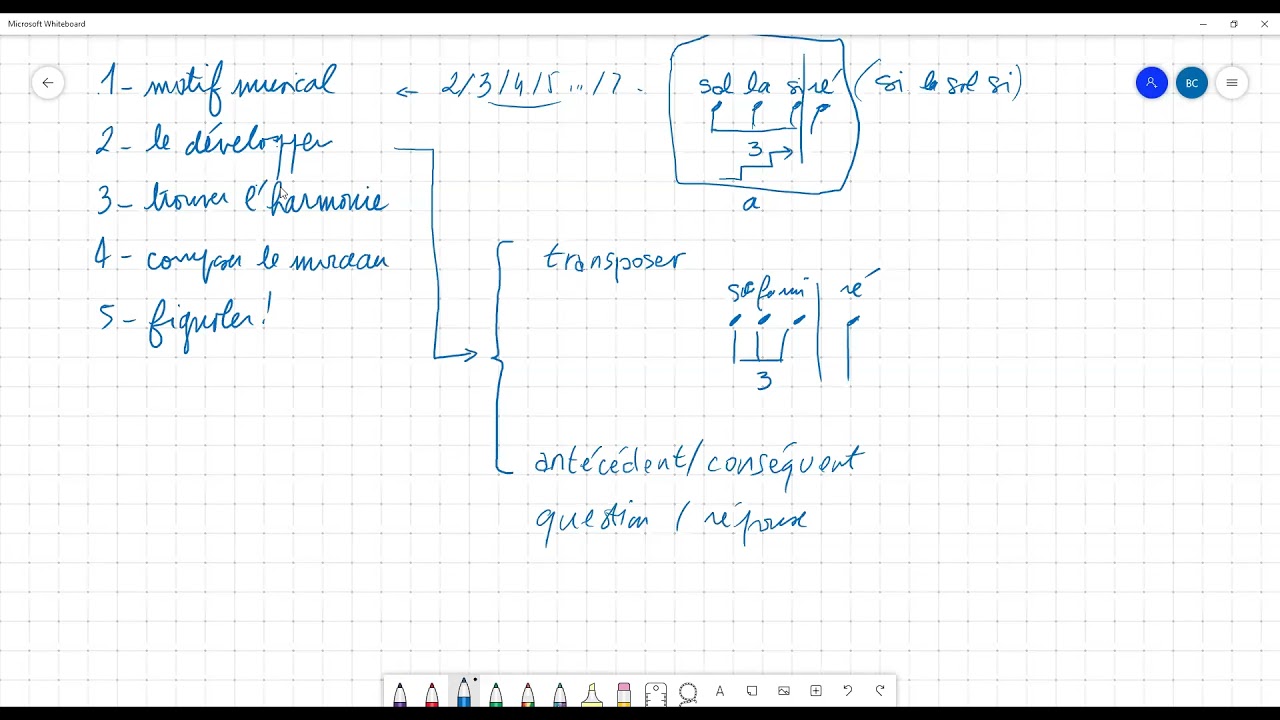 Microsoft Whiteboard
BC
1 - motif musical ← 2/3/4/5.../7.
sol la si ré (si la sol si)
3
a
2 - le développer
3 - trouver l'harmonie
4 - composer le morceau
5 - fignoler!
transposer
sol fa mi ré
3
antécédent/conséquent
question / réponse
A